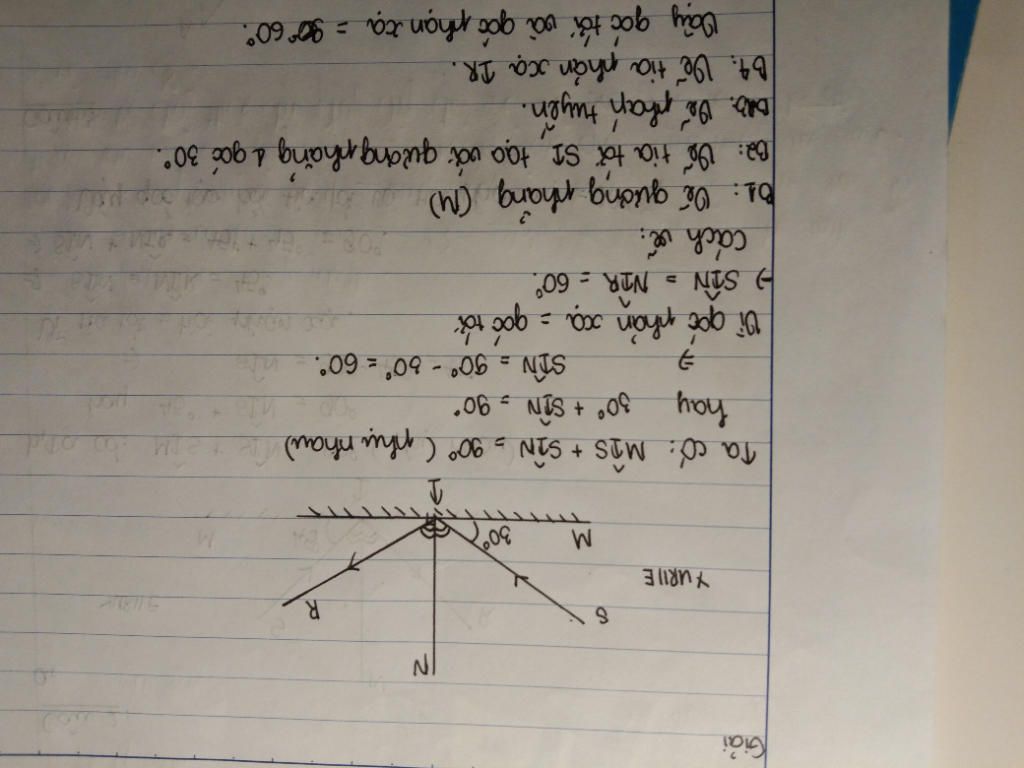 Giải
N
S
R
YURIIE
M
30°
I
Ta có: MÎS + SÎN = 90° (phụ nhau)
hay 30° + SÎN = 90°
⇒ SÎN = 90° - 30° = 60°.
Vì góc phản xạ = góc tới
⇒ SÎN = NÎR = 60°.
Cách vẽ:
B1: Vẽ gương phẳng (M)
B2: Vẽ tia tới SI tạo với gương phẳng 1 góc 30°.
Vẽ pháp tuyến.
B4: Vẽ tia phản xạ IR.
Vậy góc tới và góc phản xạ = 60°.